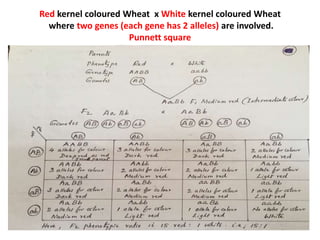 Red kernel coloured Wheat x White kernel coloured Wheat
where two genes (each gene has 2 alleles) are involved.
Punnett square
Parents
Phenotype Red x White
Genotype AABB aabb
Gametes AB ab
AaBb F1 Medium red (Intermediate colour)
F2 AaBb x AaBb
Gametes AB Ab aB ab
AB Ab aB ab
AB
AABB AABb AaBB AaBb
4 alleles for colour 3 alleles for colour 3 alleles for colour 2 alleles for colour
Deep red Dark red Dark red Medium red
Ab
AABb AAbb AaBb Aabb
3 alleles for colour 2 alleles for colour 2 alleles for colour 1 allele for colour
Dark red Medium red Medium red Light red
aB
AaBB AaBb aaBB aaBb
3 alleles for colour 2 alleles for colour 2 alleles for colour 1 allele for colour
Dark red Medium red Medium red Light red
ab
AaBb Aabb aaBb aabb
2 alleles for colour 1 allele for colour 1 allele for colour No alleles for colour
Medium red Light red Light red White
Here, F2 phenotypic ratio is 15 red : 1 white i.e., 15:1